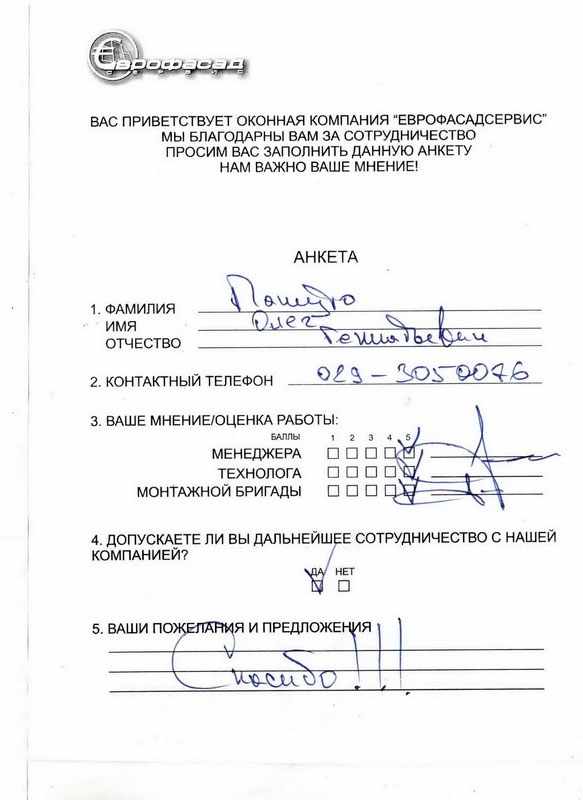 Еврофасад
СЕРВИС
ВАС ПРИВЕТСТВУЕТ ОКОННАЯ КОМПАНИЯ "ЕВРОФАСАДСЕРВИС"
МЫ БЛАГОДАРНЫ ВАМ ЗА СОТРУДНИЧЕСТВО
ПРОСИМ ВАС ЗАПОЛНИТЬ ДАННУЮ АНКЕТУ
НАМ ВАЖНО ВАШЕ МНЕНИЕ!
АНКЕТА
1. ФАМИЛИЯ
ИМЯ Олег
ОТЧЕСТВО Геннадьевич
2. КОНТАКТНЫЙ ТЕЛЕФОН 029-3050076
3. ВАШЕ МНЕНИЕ/ОЦЕНКА РАБОТЫ:
БАЛЛЫ 1 2 3 4 5
МЕНЕДЖЕРА
ТЕХНОЛОГА
МОНТАЖНОЙ БРИГАДЫ
4. ДОПУСКАЕТЕ ЛИ ВЫ ДАЛЬНЕЙШЕЕ СОТРУДНИЧЕСТВО С НАШЕЙ
КОМПАНИЕЙ?
ДА НЕТ
5. ВАШИ ПОЖЕЛАНИЯ И ПРЕДЛОЖЕНИЯ
Спасибо!!!